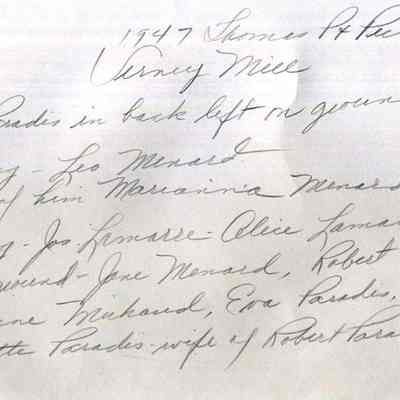 1947 Thomas Pt Pu
Verney Mill
Paradis in back left on groun
g - Leo Menard
of him Marianna Menard
g - Jos. Lamarre - Alice Lamar
round - Jane Menard, Robert
ne Michaud, Eva Paradis,
tte Paradis - wife of Robert Para